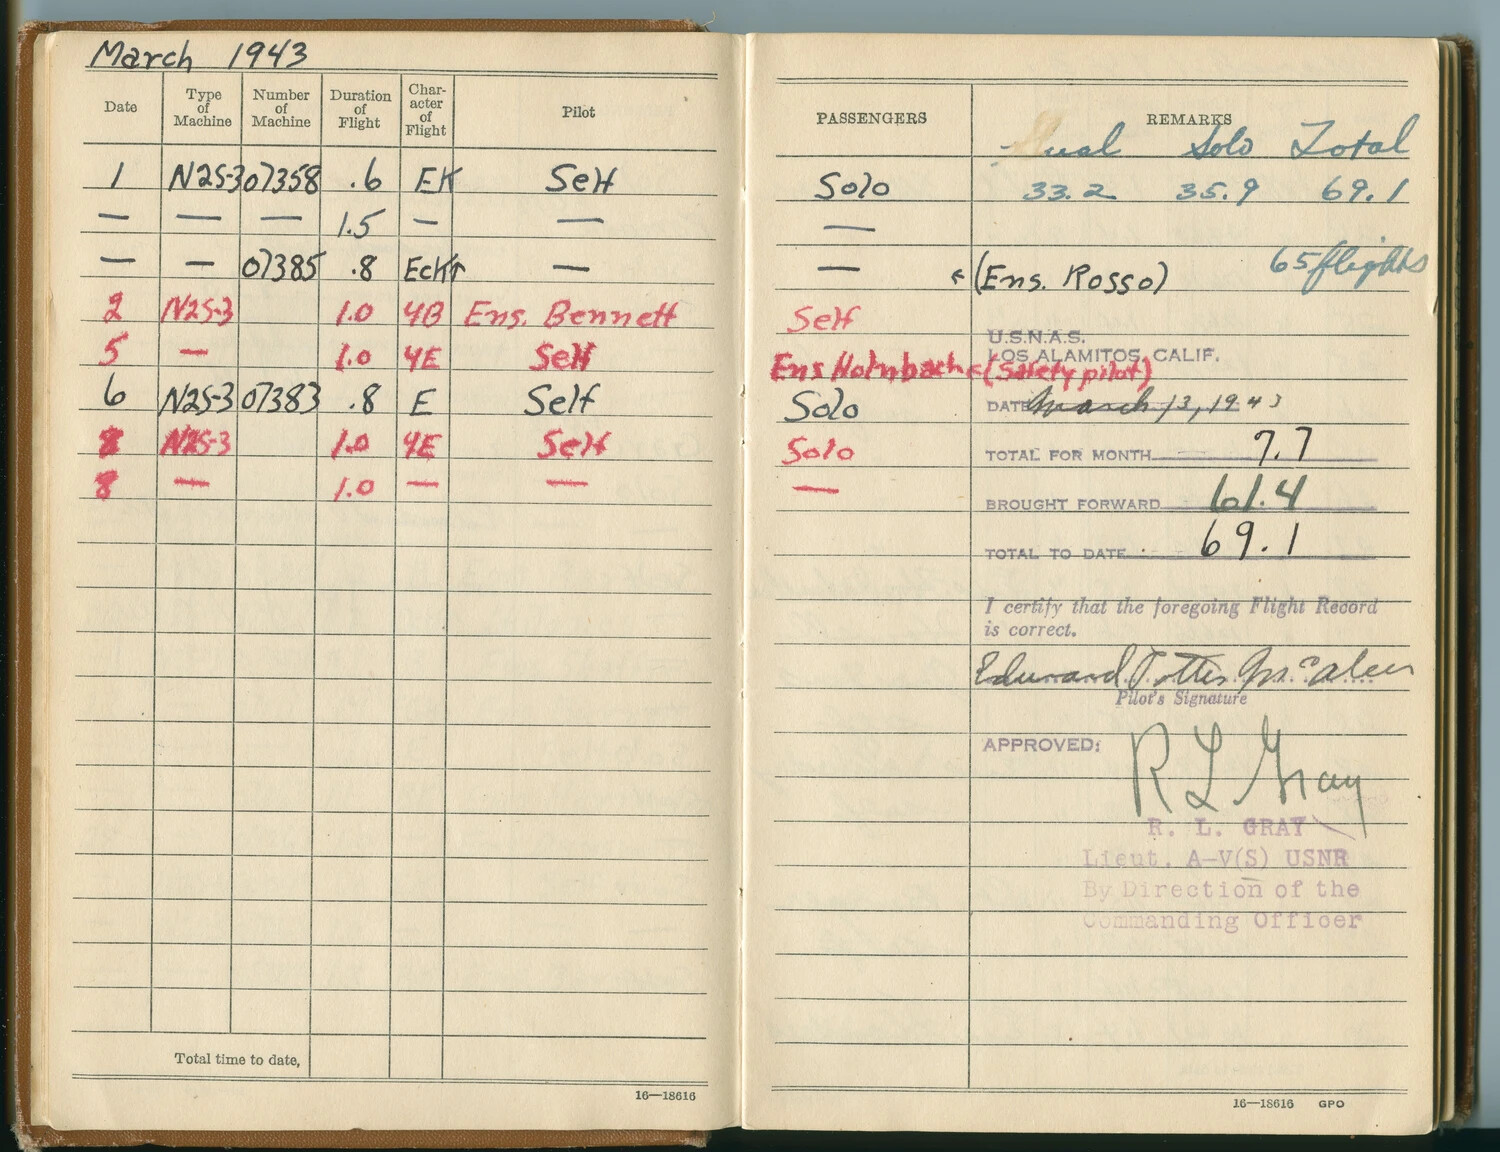 March 1943
Date Type of Machine Number of Machine Duration of Flight Char-acter of Flight Pilot
1 N2S-3 07358 .6 EK Self
— — — 1.5 — —
— — 07385 .8 Eck↑ —
2 N2S-3 1.0 4B Ens. Bennett
5 — 1.0 4E Self
6 N2S-3 07383 .8 E Self
8 N2S-3 1.0 4E Self
8 — 1.0 — —
Total time to date,
16—18616
PASSENGERS REMARKS
Dual Solo Total
Solo 33.2 35.9 69.1
—
— (Ens. Rosso) 65 flights
Self
U.S.N.A.S.
LOS ALAMITOS, CALIF.
Ens Holmbach (Safety pilot)
Solo DATE March 13, 1943
Solo TOTAL FOR MONTH 7.7
—
BROUGHT FORWARD 61.4
TOTAL TO DATE 69.1
I certify that the foregoing Flight Record
is correct.
Edward Potter McAleer
Pilot's Signature
APPROVED:
R L Gray
R. L. GRAY
Lieut. A-V(S) USNR
By Direction of the
Commanding Officer
16—18616 GPO